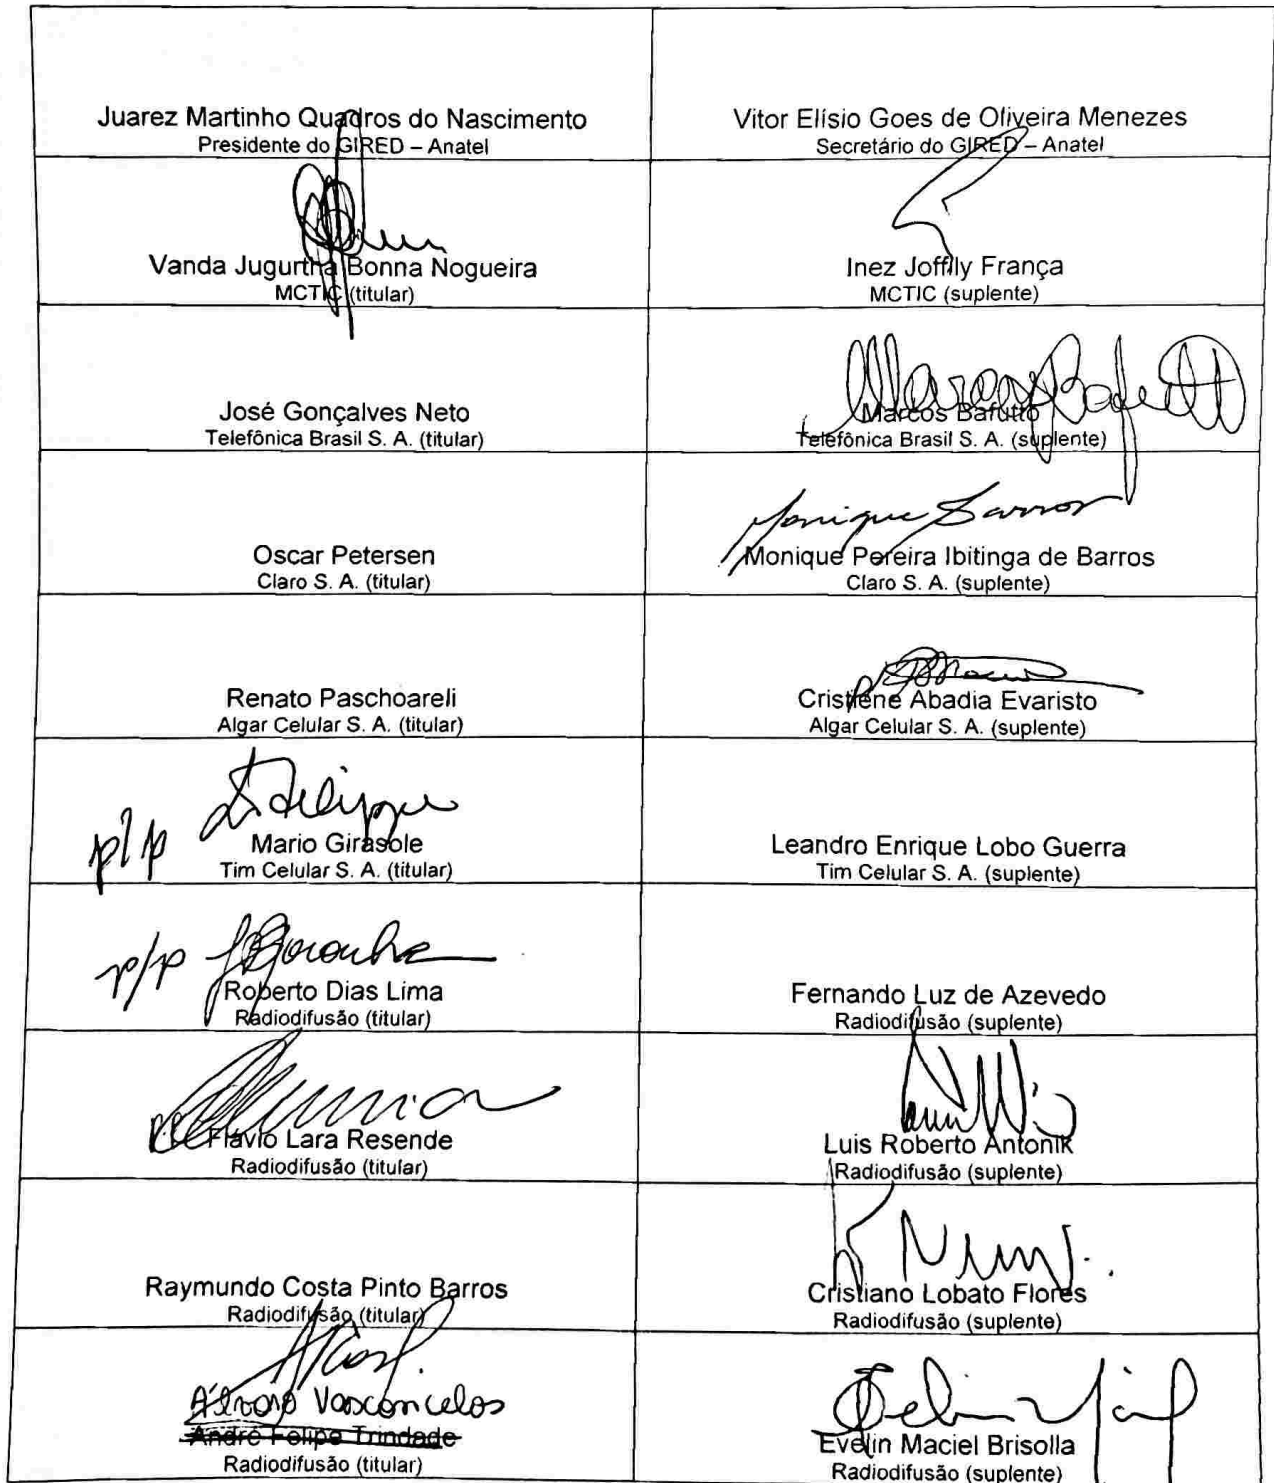 Juarez Martinho Quadros do Nascimento
Presidente do GIRED – Anatel
Vitor Elísio Goes de Oliveira Menezes
Secretário do GIRED – Anatel
Vanda Jugurtha Bonna Nogueira
MCTIC (titular)
Inez Joffily França
MCTIC (suplente)
José Gonçalves Neto
Telefônica Brasil S. A. (titular)
Marcos Bafutto
Marcos Bafutto
Telefônica Brasil S. A. (suplente)
Oscar Petersen
Claro S. A. (titular)
Monique Barros
Monique Pereira Ibitinga de Barros
Claro S. A. (suplente)
Renato Paschoareli
Algar Celular S. A. (titular)
Cristiene Abadia Evaristo
Algar Celular S. A. (suplente)
p/p
Mario Girasole
Tim Celular S. A. (titular)
Leandro Enrique Lobo Guerra
Tim Celular S. A. (suplente)
p/p
Roberto Dias Lima
Radiodifusão (titular)
Fernando Luz de Azevedo
Radiodifusão (suplente)
Flávio Lara Resende
Radiodifusão (titular)
Luis Roberto Antonik
Radiodifusão (suplente)
Raymundo Costa Pinto Barros
Radiodifusão (titular)
Cristiano Lobato Flores
Radiodifusão (suplente)
Álvaro Vasconcelos
André Felipe Trindade
Radiodifusão (titular)
Evelin Maciel Brisolla
Radiodifusão (suplente)